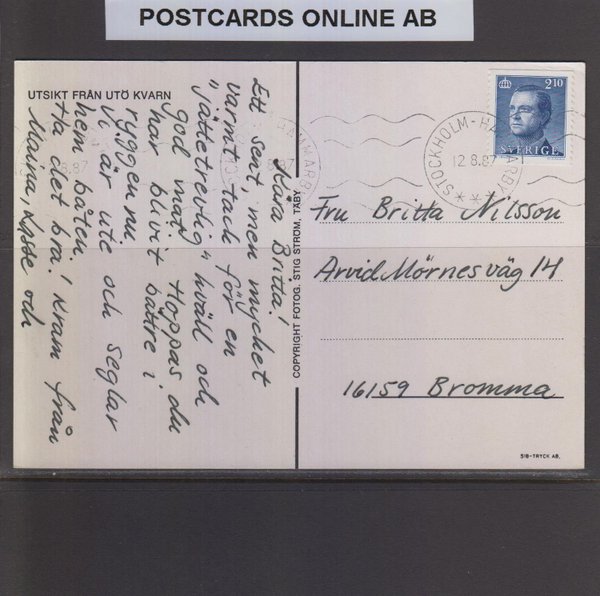 POSTCARDS ONLINE AB
UTSIKT FRÅN UTÖ KVARN
Kära Britta!
Ett sent, men mycket
varmt tack för en
"jättetrevlig" kväll och
god mat. Hoppas du
har blivit bättre i
ryggen nu.
Vi är ute och seglar
hem båten.
Ha det bra! Kram från
Marina, Kasse och
COPYRIGHT FOTOG. STIG STRÖM, TÄBY
2.10
SVERIGE
STOCKHOLM-HAMMARBY
12.8.87
Fru Britta Nilsson
Arvid Mörnes väg 14
16159 Bromma
SIB-TRYCK AB.